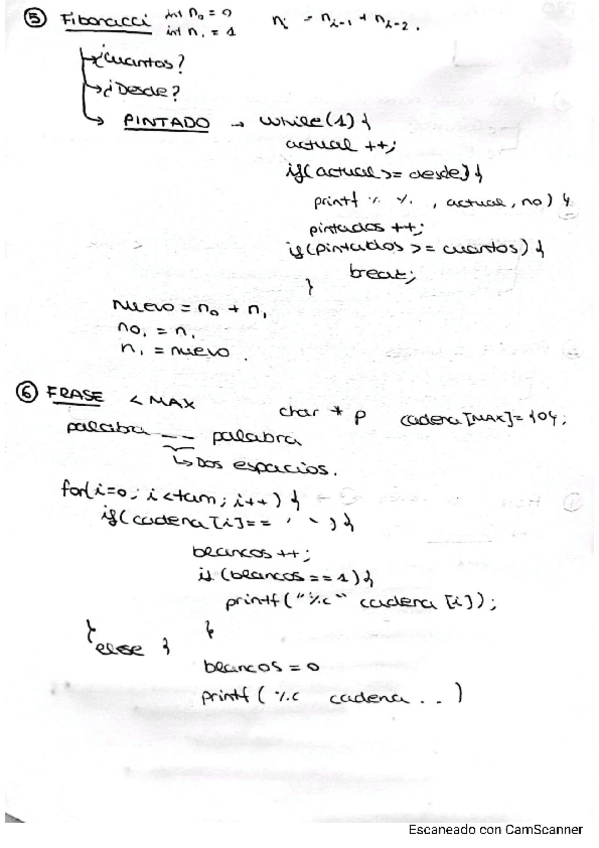 ⑤ Fibonacci int n₀ = 0 nᵢ = nᵢ₋₁ + nᵢ₋₂.
int n₁ = 1
¿cuantos?
¿Desde?
PINTADO → while(1){
actual ++;
if(actual >= desde){
printf % %. , actual, no) }
pintados ++;
if(pintados >= cuantos) {
break;
}
nuevo = n₀ + n₁
no₁ = n₁
n₁ = nuevo.
⑥ FRASE < MAX char * p cadena [MAX]= {0};
palabra _ _ palabra
↳ Dos espacios.
for(i=0; i<tam; i++) {
if(cadena [i]== ' ') {
blancos ++;
if (blancos == 1){
printf("%c" cadena [i]);
} }
else {
blancos = 0
printf( %c cadena . . )
Escaneado con CamScanner